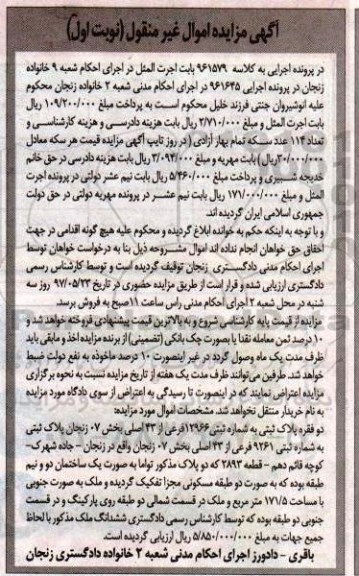 آگهی مزایده اموال غیر منقول (نوبت اول)
در پرونده اجرایی به کلاسه ۹۶۱۵۷۹ بابت اجرت المثل در اجرای احکام شعبه ۹ خانواده
زنجان در پرونده اجرایی ۹۶۱۶۴۵ در اجرای احکام مدنی شعبه ۲ خانواده زنجان محکوم
علیه انوشیروان جنتی فرزند خلیل محکوم است به پرداخت مبلغ ۱۰۹/۲۰۰/۰۰۰ ریال
بابت اجرت المثل و مبلغ ۲/۷۱۰/۰۰۰ ریال بابت هزینه دادرسی و هزینه کارشناسی و
تعداد ۱۱۴ عدد سکه تمام بهار آزادی ( در روز تایپ آگهی مزایده قیمت هر سکه معادل
۳۰/۰۰۰/۰۰۰ ریال ) بابت مهریه و مبلغ ۳/۰۹۴/۰۰۰ ریال بابت هزینه دادرسی در حق خانم
خدیجه شبیری و پرداخت مبلغ ۵/۴۶۰/۰۰۰ ریال بابت نیم عشر دولتی در پرونده اجرت
المثل و مبلغ ۱۷۱/۰۰۰/۰۰۰ ریال بابت نیم عشر در پرونده مهریه دولتی در حق دولت
جمهوری اسلامی ایران گردیده اند.
و با توجه به اینکه حکم به خوانده ابلاغ گردیده و محکوم علیه هیچ گونه اقدامی در جهت
احقاق حق خواهان انجام نداده اند اموال مشروحه ذیل بنا به درخواست خواهان توسط
اجرای احکام مدنی دادگستری زنجان توقیف گردیده است و توسط کارشناس رسمی
دادگستری ارزیابی شده و قرار است از طریق مزایده حضوری در تاریخ ۹۷/۰۵/۲۳ روز سه
شنبه در محل شعبه ۲ اجرای احکام مدنی راس ساعت ۱۱ صبح به فروش برسد.
مزایده از قیمت پایه کارشناسی شروع و به بالاترین قیمت پیشنهادی فروخته خواهد شد و
۱۰ درصد ثمن معامله نقدا یا بصورت چک بانکی (تضمینی) از برنده مزایده اخذ و مابقی باید
ظرف مدت یک ماه وصول گردد در غیر اینصورت ۱۰ درصد ماخوذه به نفع دولت ضبط
خواهد شد. طرفین می‌توانند ظرف مدت یک هفته از تاریخ مزایده نسبت به نحوه برگزاری
مزایده اعتراض نمایند که در اینصورت تا رسیدگی به اعتراض از سوی دادگاه مورد مزایده
به نام خریدار منتقل نخواهد شد. مشخصات اموال مورد مزایده:
دو فقره پلاک ثبتی به شماره ثبتی ۱۲۹۶۶ فرعی از ۴۳ اصلی بخش ۰۷ زنجان پلاک ثبتی
به شماره ثبتی ۹۲۶۱ فرعی از ۴۳ اصلی بخش ۰۷ زنجان واقع در زنجان - جاده شهرک-
کوچه قائم دهم - قطعه ۲۸۹۳ که دو پلاک مذکور تواما به صورت یک ساختمان دو و نیم
طبقه بوده که به صورت دو طبقه مسکونی مجزا تفکیک گردیده و ملک به صورت جنوبی
با مساحت ۱۷۱/۵ متر مربع و ملک در قسمت شمالی دو طبقه روی پارکینگ و در قسمت
جنوبی دو طبقه بوده که توسط کارشناس رسمی دادگستری ششدانگ ملک مذکور با لحاظ
جمیع جهات به مبلغ ۵/۸۵۰/۰۰۰/۰۰۰ ریال ارزیابی گردیده است.
باقری - دادورز اجرای احکام مدنی شعبه ۲ خانواده دادگستری زنجان